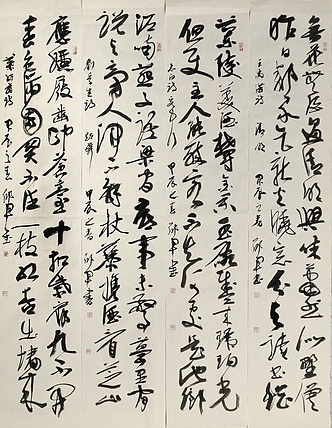 無花無酒過清明興味蕭然似野僧
昨日鄰家乞新火曉窗分與讀書燈
王禹偁詩 清明 甲辰之春
蘭陵美酒鬱金香玉碗盛來琥珀光
但使主人能醉客不知何處是他鄉
太白詩 客中行 甲辰之春
呢喃燕子語梁間底事來驚夢裏閒
說與旁人渾不解杖藜攜酒看芝山
劉季孫詩 題屏 甲辰之春
應憐屐齒印蒼苔小扣柴扉久不開
春色滿園關不住一枝紅杏出墻來
葉紹翁詩 甲辰之春